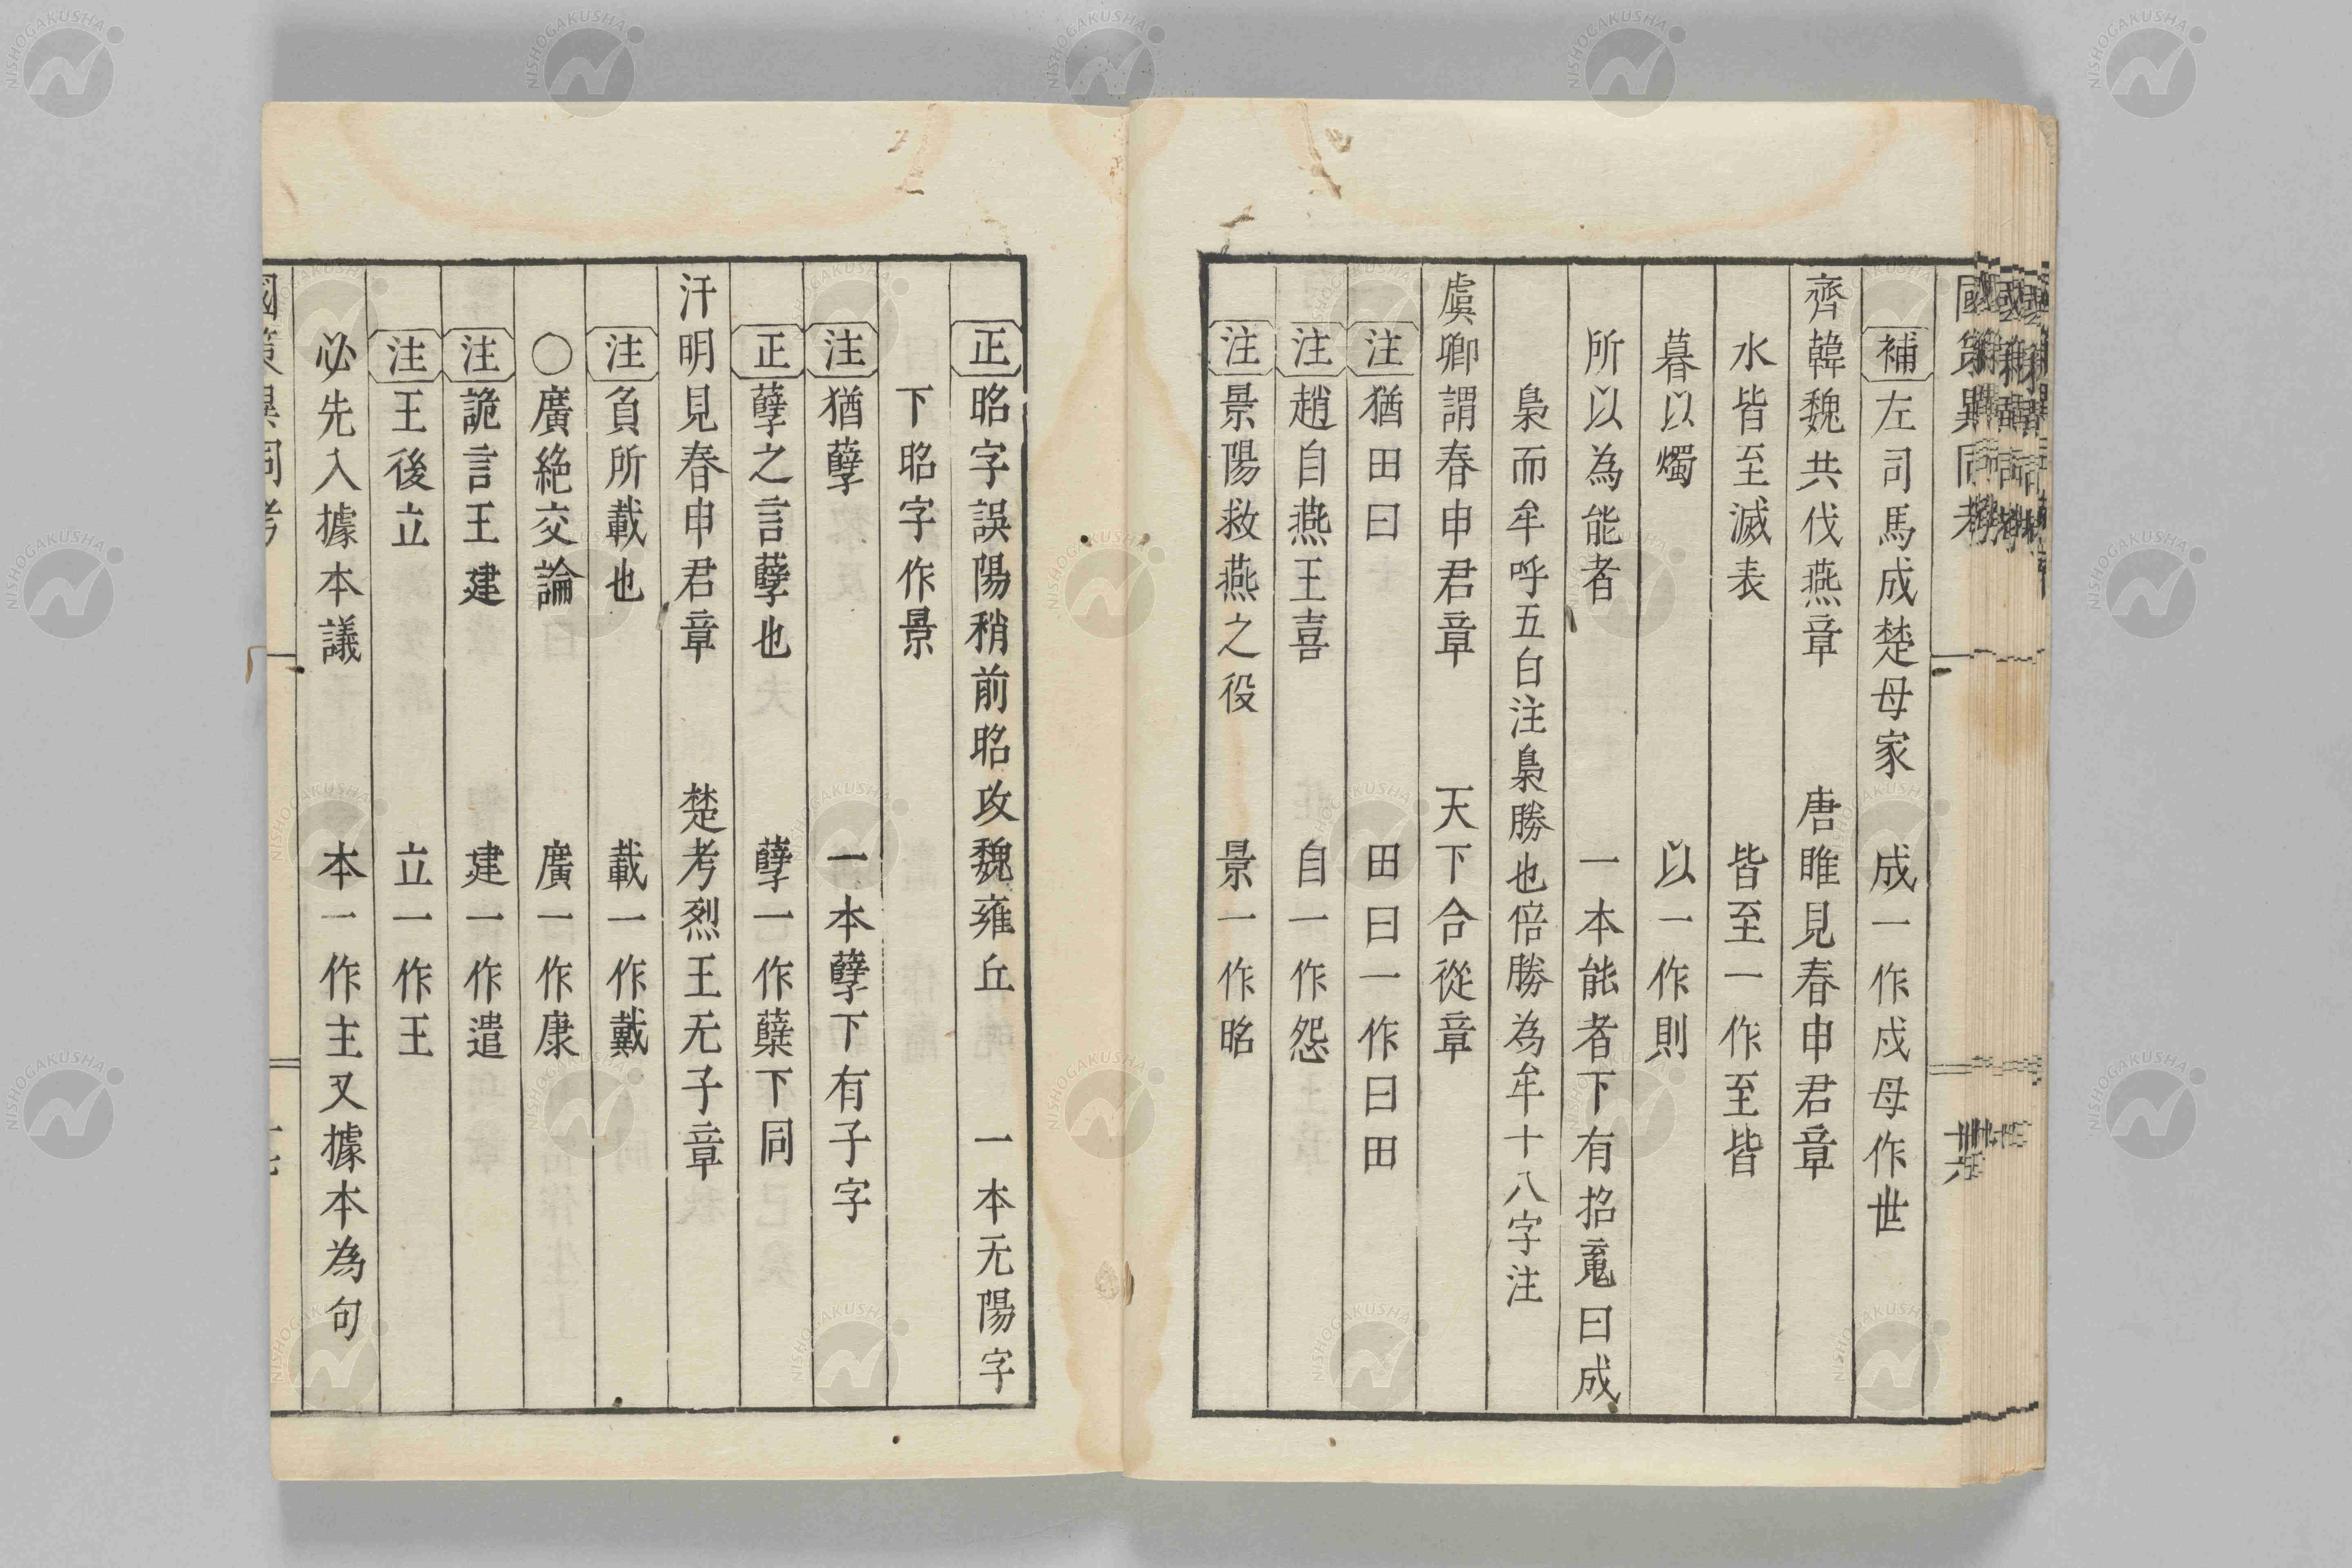 國策異同考
補 左司馬成楚母家 成一作戍母作世
齊韓魏共伐燕章 唐雎見春申君章
水皆至滅表 皆至一作至皆
暮以燭 以一作則
所以為能者 一本能者下有招䰟曰成
梟而牟呼五白注梟勝也倍勝為牟十八字注
虞卿謂春申君章 天下合從章
注 猶田曰 田曰一作曰田
注 趙自燕王喜 自一作怨
注 景陽救燕之役 景一作昭
正 昭字誤陽稍前昭攻魏雍丘 一本无陽字
下昭字作景
注 猶孽 一本孽下有子字
正 孽之言孽也 孽一作蘖下同
汗明見春申君章 楚考烈王无子章
注 負所載也 載一作戴
○廣絶交論 廣一作康
注 詭言王建 建一作遣
注 王後立 立一作王
必先入據本議 本一作主又據本為句
國策異同考
NISHOGAKUSHA